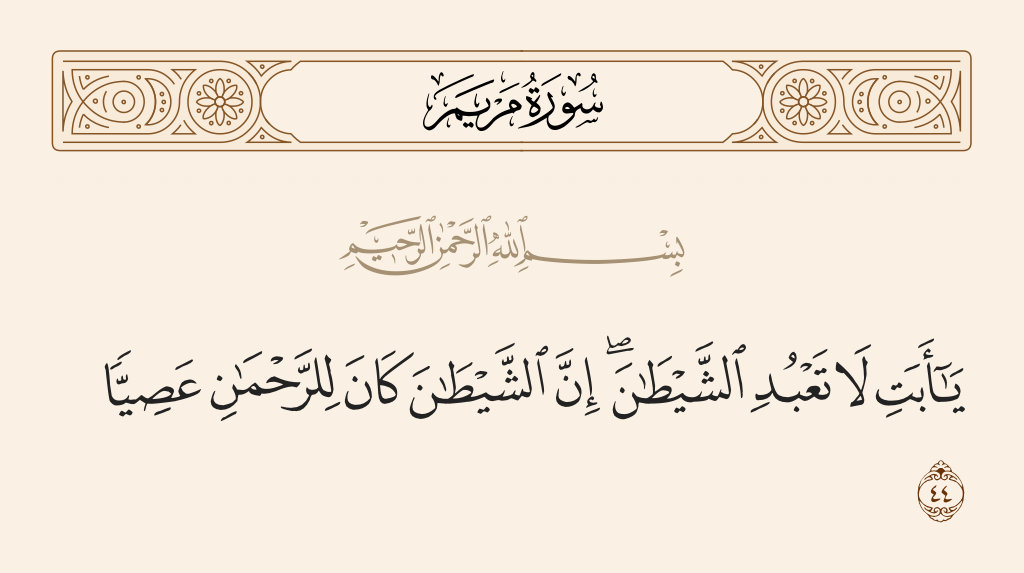 سُورَةُ مَرْيَمَ
بِسْمِ ٱللَّهِ ٱلرَّحْمَٰنِ ٱلرَّحِيمِ
يَـٰٓأَبَتِ لَا تَعْبُدِ ٱلشَّيْطَـٰنَ ۖ إِنَّ ٱلشَّيْطَـٰنَ كَانَ لِلرَّحْمَـٰنِ عَصِيًّا
٤٤